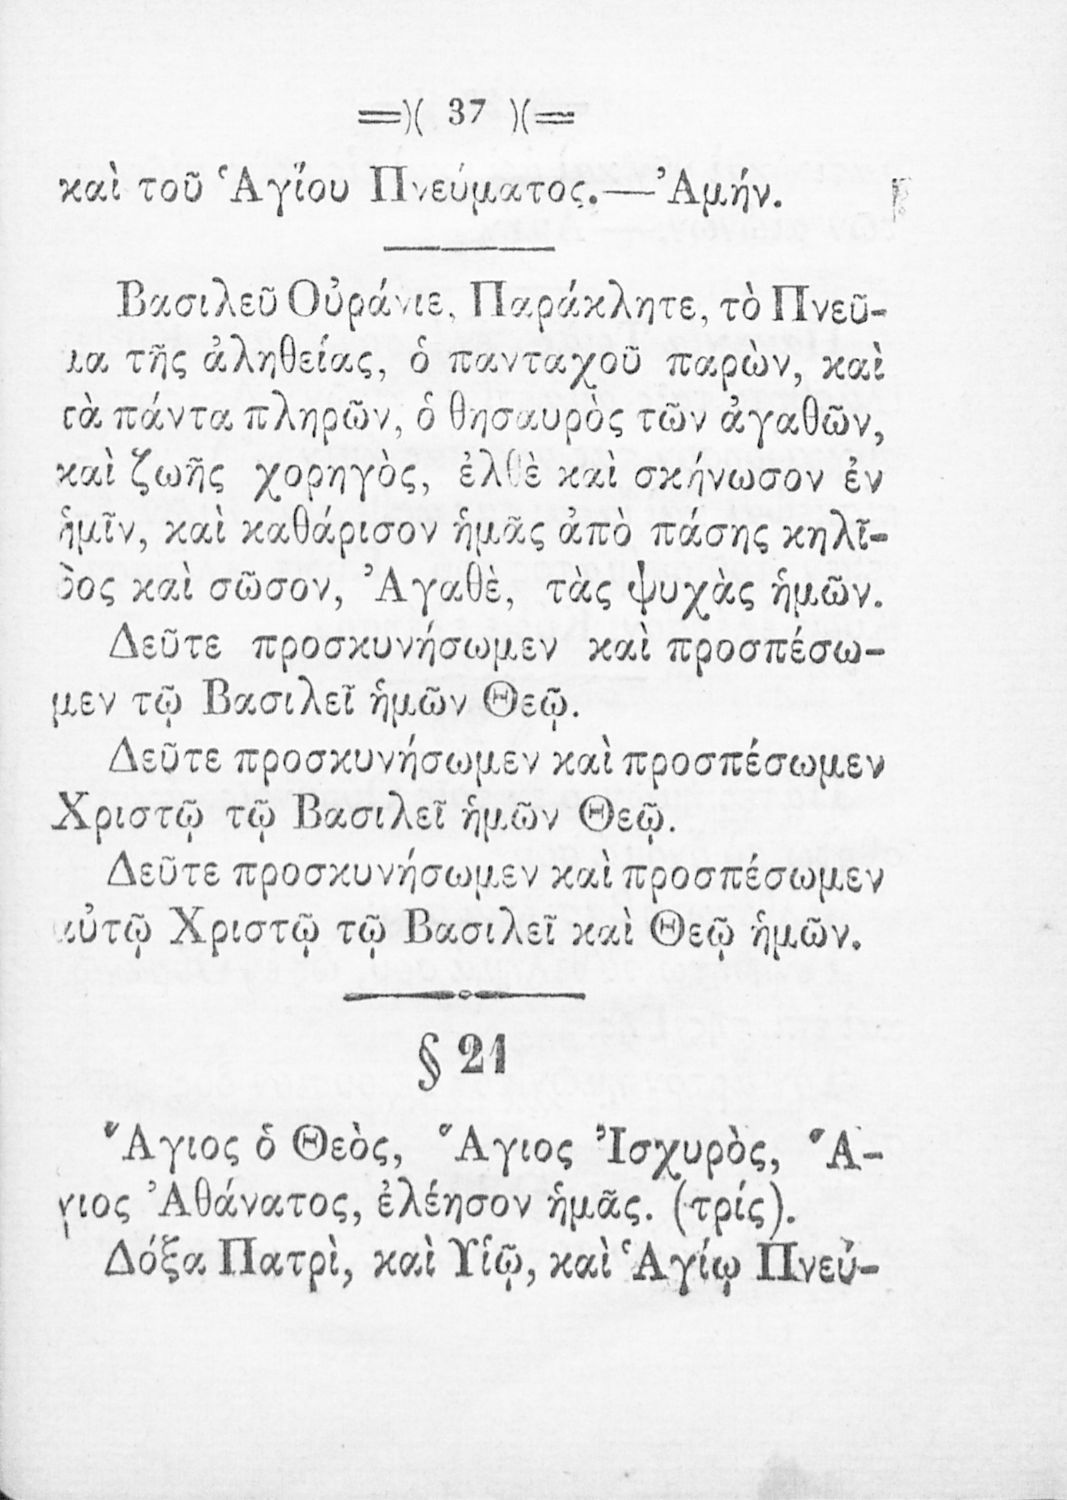 =)( 37 )(=
καὶ τοῦ Ἁγΐου Πνεύματος.—Ἀμήν.
Βασιλεῦ Οὐράνιε, Παράκλητε, τὸ Πνεῦ-
μα τῆς ἀληθείας, ὁ πανταχοῦ παρὼν, καὶ
τὰ πάντα πληρῶν, ὁ θησαυρὸς τῶν ἀγαθῶν,
καὶ ζωῆς χορηγὸς, ἐλθὲ καὶ σκήνωσον ἐν
ἡμῖν, καὶ καθάρισον ἡμᾶς ἀπὸ πάσης κηλῖ-
δος καὶ σῶσον, Ἀγαθὲ, τὰς ψυχὰς ἡμῶν.
Δεῦτε προσκυνήσωμεν καὶ προσπέσω-
μεν τῷ Βασιλεῖ ἡμῶν Θεῷ.
Δεῦτε προσκυνήσωμεν καὶ προσπέσωμεν
Χριστῷ τῷ Βασιλεῖ ἡμῶν Θεῷ.
Δεῦτε προσκυνήσωμεν καὶ προσπέσωμεν
αὐτῷ Χριστῷ τῷ Βασιλεῖ καὶ Θεῷ ἡμῶν.
§ 21
Ἅγιος ὁ Θεὸς, Ἅγιος Ἰσχυρὸς, Ἅ-
γιος Ἀθάνατος, ἐλέησον ἡμᾶς. (τρίς).
Δόξα Πατρὶ, καὶ Υἱῷ, καὶ Ἁγίῳ Πνεύ-